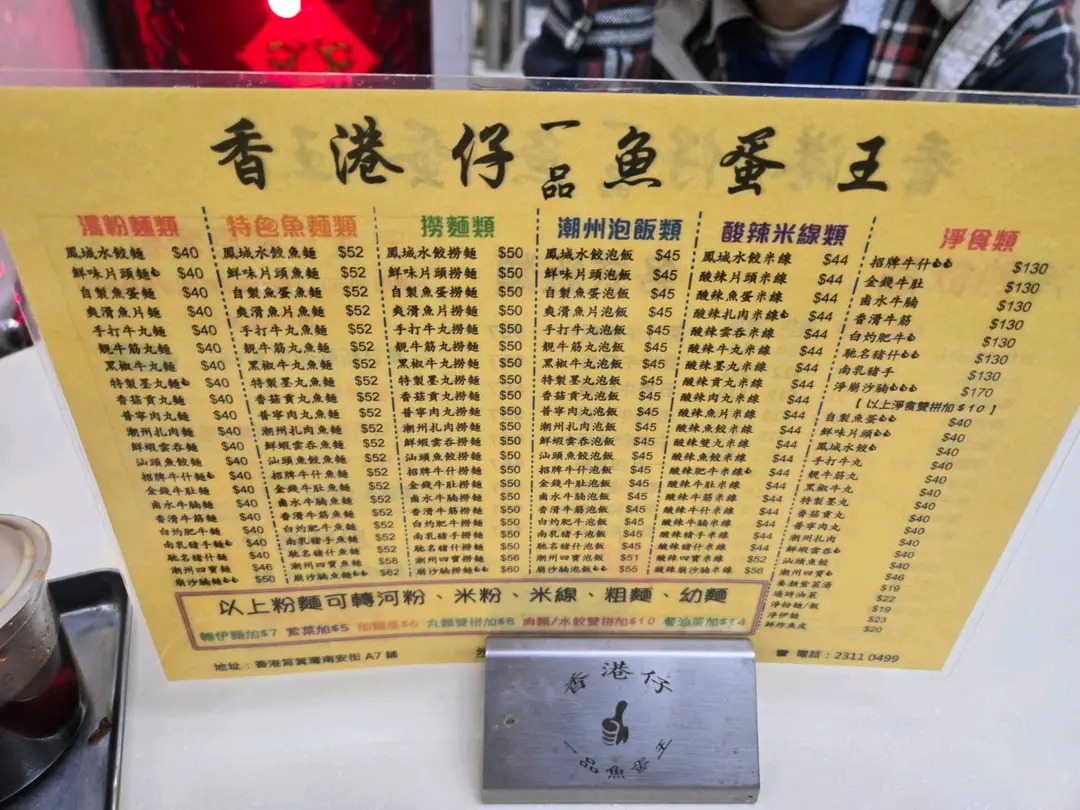 香港仔一品魚蛋王
湯粉麵類
鳳城水餃麵 $40
鮮味片頭麵 $40
自製魚蛋麵 $40
爽滑魚片麵 $40
手打牛丸麵 $40
靚牛筋丸麵 $40
黑椒牛丸麵 $40
特製墨丸麵 $40
香菇貢丸麵 $40
普寧肉丸麵 $40
潮州扎肉麵 $40
鮮蝦雲吞麵 $40
汕頭魚餃麵 $40
招牌牛什麵 $40
金錢牛肚麵 $40
鹵水牛腩麵 $40
香滑牛筋麵 $40
白灼肥牛麵 $40
南乳豬手麵 $40
馳名豬什麵 $40
潮州四寶麵 $46
崩沙腩麵 $50
特色魚麵類
鳳城水餃魚麵 $52
鮮味片頭魚麵 $52
自製魚蛋魚麵 $52
爽滑魚片魚麵 $52
手打牛丸魚麵 $52
靚牛筋丸魚麵 $52
黑椒牛丸魚麵 $52
特製墨丸魚麵 $52
香菇貢丸魚麵 $52
普寧肉丸魚麵 $52
潮州扎肉魚麵 $52
鮮蝦雲吞魚麵 $52
汕頭魚餃魚麵 $52
招牌牛什魚麵 $52
金錢牛肚魚麵 $52
鹵水牛腩魚麵 $52
香滑牛筋魚麵 $52
白灼肥牛魚麵 $52
南乳豬手魚麵 $52
馳名豬什魚麵 $52
潮州四寶魚麵 $58
崩沙腩魚麵 $62
撈麵類
鳳城水餃撈麵 $50
鮮味片頭撈麵 $50
自製魚蛋撈麵 $50
爽滑魚片撈麵 $50
手打牛丸撈麵 $50
靚牛筋丸撈麵 $50
黑椒牛丸撈麵 $50
特製墨丸撈麵 $50
香菇貢丸撈麵 $50
普寧肉丸撈麵 $50
潮州扎肉撈麵 $50
鮮蝦雲吞撈麵 $50
汕頭魚餃撈麵 $50
招牌牛什撈麵 $50
金錢牛肚撈麵 $50
鹵水牛腩撈麵 $50
香滑牛筋撈麵 $50
白灼肥牛撈麵 $50
南乳豬手撈麵 $50
馳名豬什撈麵 $50
潮州四寶撈麵 $56
崩沙腩撈麵 $60
潮州泡飯類
鳳城水餃泡飯 $45
鮮味片頭泡飯 $45
自製魚蛋泡飯 $45
爽滑魚片泡飯 $45
手打牛丸泡飯 $45
靚牛筋丸泡飯 $45
黑椒牛丸泡飯 $45
特製墨丸泡飯 $45
香菇貢丸泡飯 $45
普寧肉丸泡飯 $45
潮州扎肉泡飯 $45
鮮蝦雲吞泡飯 $45
汕頭魚餃泡飯 $45
招牌牛什泡飯 $45
金錢牛肚泡飯 $45
鹵水牛腩泡飯 $45
香滑牛筋泡飯 $45
白灼肥牛泡飯 $45
南乳豬手泡飯 $45
馳名豬什泡飯 $45
潮州四寶泡飯 $51
崩沙腩泡飯 $55
酸辣米線類
鳳城水餃米線 $44
酸辣片頭米線 $44
酸辣魚蛋米線 $44
酸辣扎肉米線 $44
酸辣雲吞米線 $44
酸辣牛丸米線 $44
酸辣墨丸米線 $44
酸辣貢丸米線 $44
酸辣肉丸米線 $44
酸辣魚片米線 $44
酸辣魚餃米線 $44
酸辣雙丸米線 $44
酸辣肥牛米線 $44
酸辣牛肚米線 $44
酸辣牛筋米線 $44
酸辣牛什米線 $44
酸辣牛腩米線 $44
酸辣豬手米線 $44
酸辣豬什米線 $44
酸辣四寶米線 $52
酸辣崩沙腩米線 $56
淨食類
招牌牛什 $130
金錢牛肚 $130
鹵水牛腩 $130
香滑牛筋 $130
白灼肥牛 $130
馳名豬什 $130
南乳豬手 $130
淨崩沙腩 $170
【以上淨食雙拼加$10】
自製魚蛋 $40
鮮味片頭 $40
鳳城水餃 $40
手打牛丸 $40
靚牛筋丸 $40
黑椒牛丸 $40
特製墨丸 $40
香菇貢丸 $40
普寧肉丸 $40
潮州扎肉 $40
鮮蝦雲吞 $40
汕頭魚餃 $40
潮州四寶 $46
紫菜湯 $19
油菜 $22
淨粉麵/飯 $19
淨伊麵 $23
鮮炸魚皮 $20
以上粉麵可轉河粉、米粉、米線、粗麵、幼麵
轉伊麵加$7 紫菜加$5 加麵底$6 丸類雙拼加$8 肉類/水餃雙拼加$10 餐油菜加$14
地址：香港筲箕灣南安街 A7 舖
電話：2311 0499
香港仔
一品魚蛋王